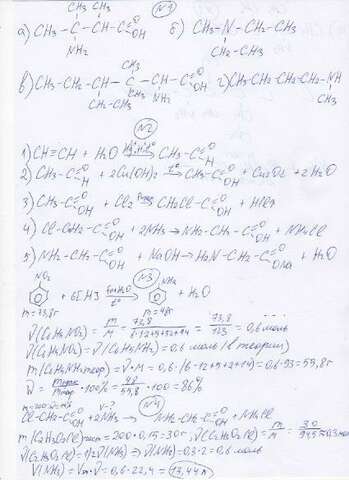 №1
CH₃ CH₃
а) CH₃-C-CH-C=O OH б) CH₃-N-CH₂-CH₃
NH₂ CH₂-CH₃
CH₃
в) CH₃-CH₂-CH-C-CH-C=O OH г) CH₃-CH₂-CH₂-CH₂-NH
CH₂-CH₃ CH₃ NH₂ CH₃
№2
1) CH≡CH + H₂O → CH₃-C=O H
2) CH₃-C=O H + 2Cu(OH)₂ t° → CH₃-C=O OH + Cu₂O↓ + 2H₂O
3) CH₃-C=O OH + Cl₂ → CH₂Cl-C=O OH + HCl
4) Cl-CH₂-C=O OH + 2NH₃ → NH₂-CH₂-C=O OH + NH₄Cl
5) NH₂-CH₂-C=O OH + NaOH → H₂N-CH₂-C=O ONa + H₂O
№3
NO₂ NH₂
+ 6[H] Fe+H₂O t° → + H₂O
m=73,8г m=48г
ν(C₆H₅NO₂) = m/M = 73,8/6·12+5+14 = 73,8/123 = 0,6 моль
ν(C₆H₅NO₂) = ν(C₆H₅NH₂) = 0,6 моль (в теории)
m(C₆H₅NH₂теор) = ν·M = 0,6·(6·12+5+2+14) = 0,6·93 = 55,8г
W = mпрак/mтеор · 100% = 48/55,8 · 100 = 86%
№4
m=200г V-?
Cl-CH₂-C=O OH + 2NH₃ → NH₂-CH₂-C=O OH + NH₄Cl
m(C₂H₃O₂Cl) = 200·0,15 = 30г, ν(C₂H₃O₂Cl) = m/M = 30/94,5 = 0,3моль
ν(C₂H₃O₂Cl) = 1/2ν(NH₃) ⇒ ν(NH₃) = 0,3·2 = 0,6 моль
V(NH₃) = Vm·ν = 0,6·22,4 = 13,44л